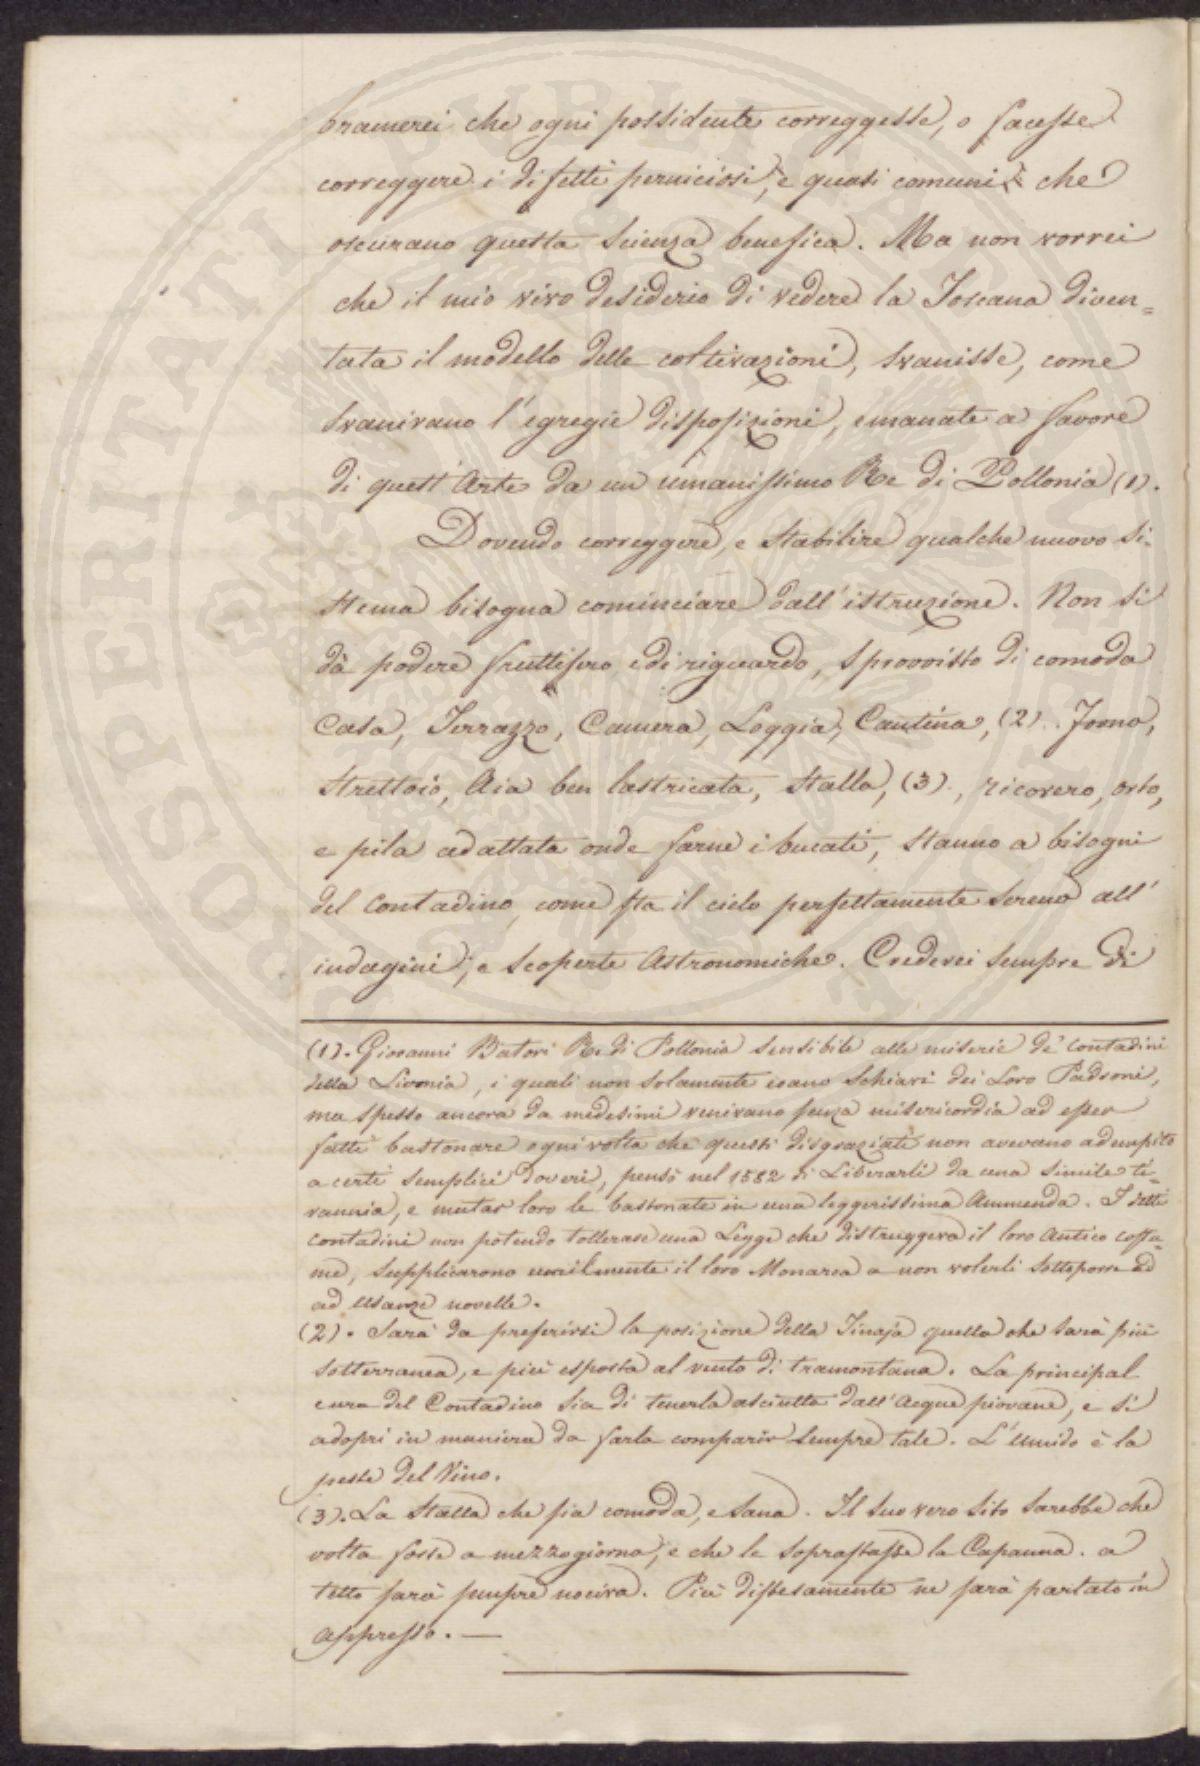 bramerei che ogni possidente correggesse, o facesse
correggere i difetti perniciosi, e quasi comuni, che
oscurano questa Scienza benefica. Ma non vorrei
che il mio vivo desiderio di vedere la Toscana diven=
tata il modello delle coltivazioni, svanisse, come
svanivano l'egregie disposizioni, emanate a favore
di quest'Arte da un umanissimo Re di Pollonia (1).
Dovendo correggere, e stabilire qualche nuovo si=
stema bisogna cominciare dall'istruzione. Non si
dà podere fruttifero, e di riguardo, sprovvisto di comoda
Casa, Terrazzo, Camera, Loggia, Cantina, (2). Forno,
Strettoio, Aia ben lastricata, Stalla, (3)., ricovero, orto,
e pila adattata onde farne i bucati, stanno a bisogni
del Contadino, come sta il cielo perfettamente sereno all'
indagini, e scoperte Astronomiche. Crederei sempre di
(1). Giovanni Batori Re di Pollonia sensibile alle miserie de' contadini
della Livonia, i quali non solamente erano Schiavi dei Loro Padroni,
ma spesso ancora da medesimi venivano senza misericordia ad esser
fatti bastonare ogni volta che questi disgraziati non avevano adempito
a certi semplici doveri, pensò nel 1582 di Liberarli da una simile ti=
rannia, e mutar loro le bastonate in una leggerissima Ammenda. I detti
contadini non potendo tollerare una Legge che distruggeva il loro Antico costu=
me, supplicarono umilmente il loro Monarca a non volerli sottoporre ad
ad usanze novelle.
(2). Sarà da preferirsi la posizione della Tinaja quella che sarà più
sotterranea, e più esposta al vento di tramontana. La principal
cura del Contadino sia di tenerla asciutta dall'Acque piovane, e si
adopri in maniera da farla comparir sempre tale. L'Umido è la
peste del Vino.
(3). La Stalla che sia comoda, e sana. Il suo vero sito sarebbe che
volta fosse a mezzogiorno, e che le soprastasse la Capanna. a
tetto sarà sempre nociva. Più distesamente ne sarà parlato in
appresso. —
PROSPERITATI PUBLICAE AUGENDAE